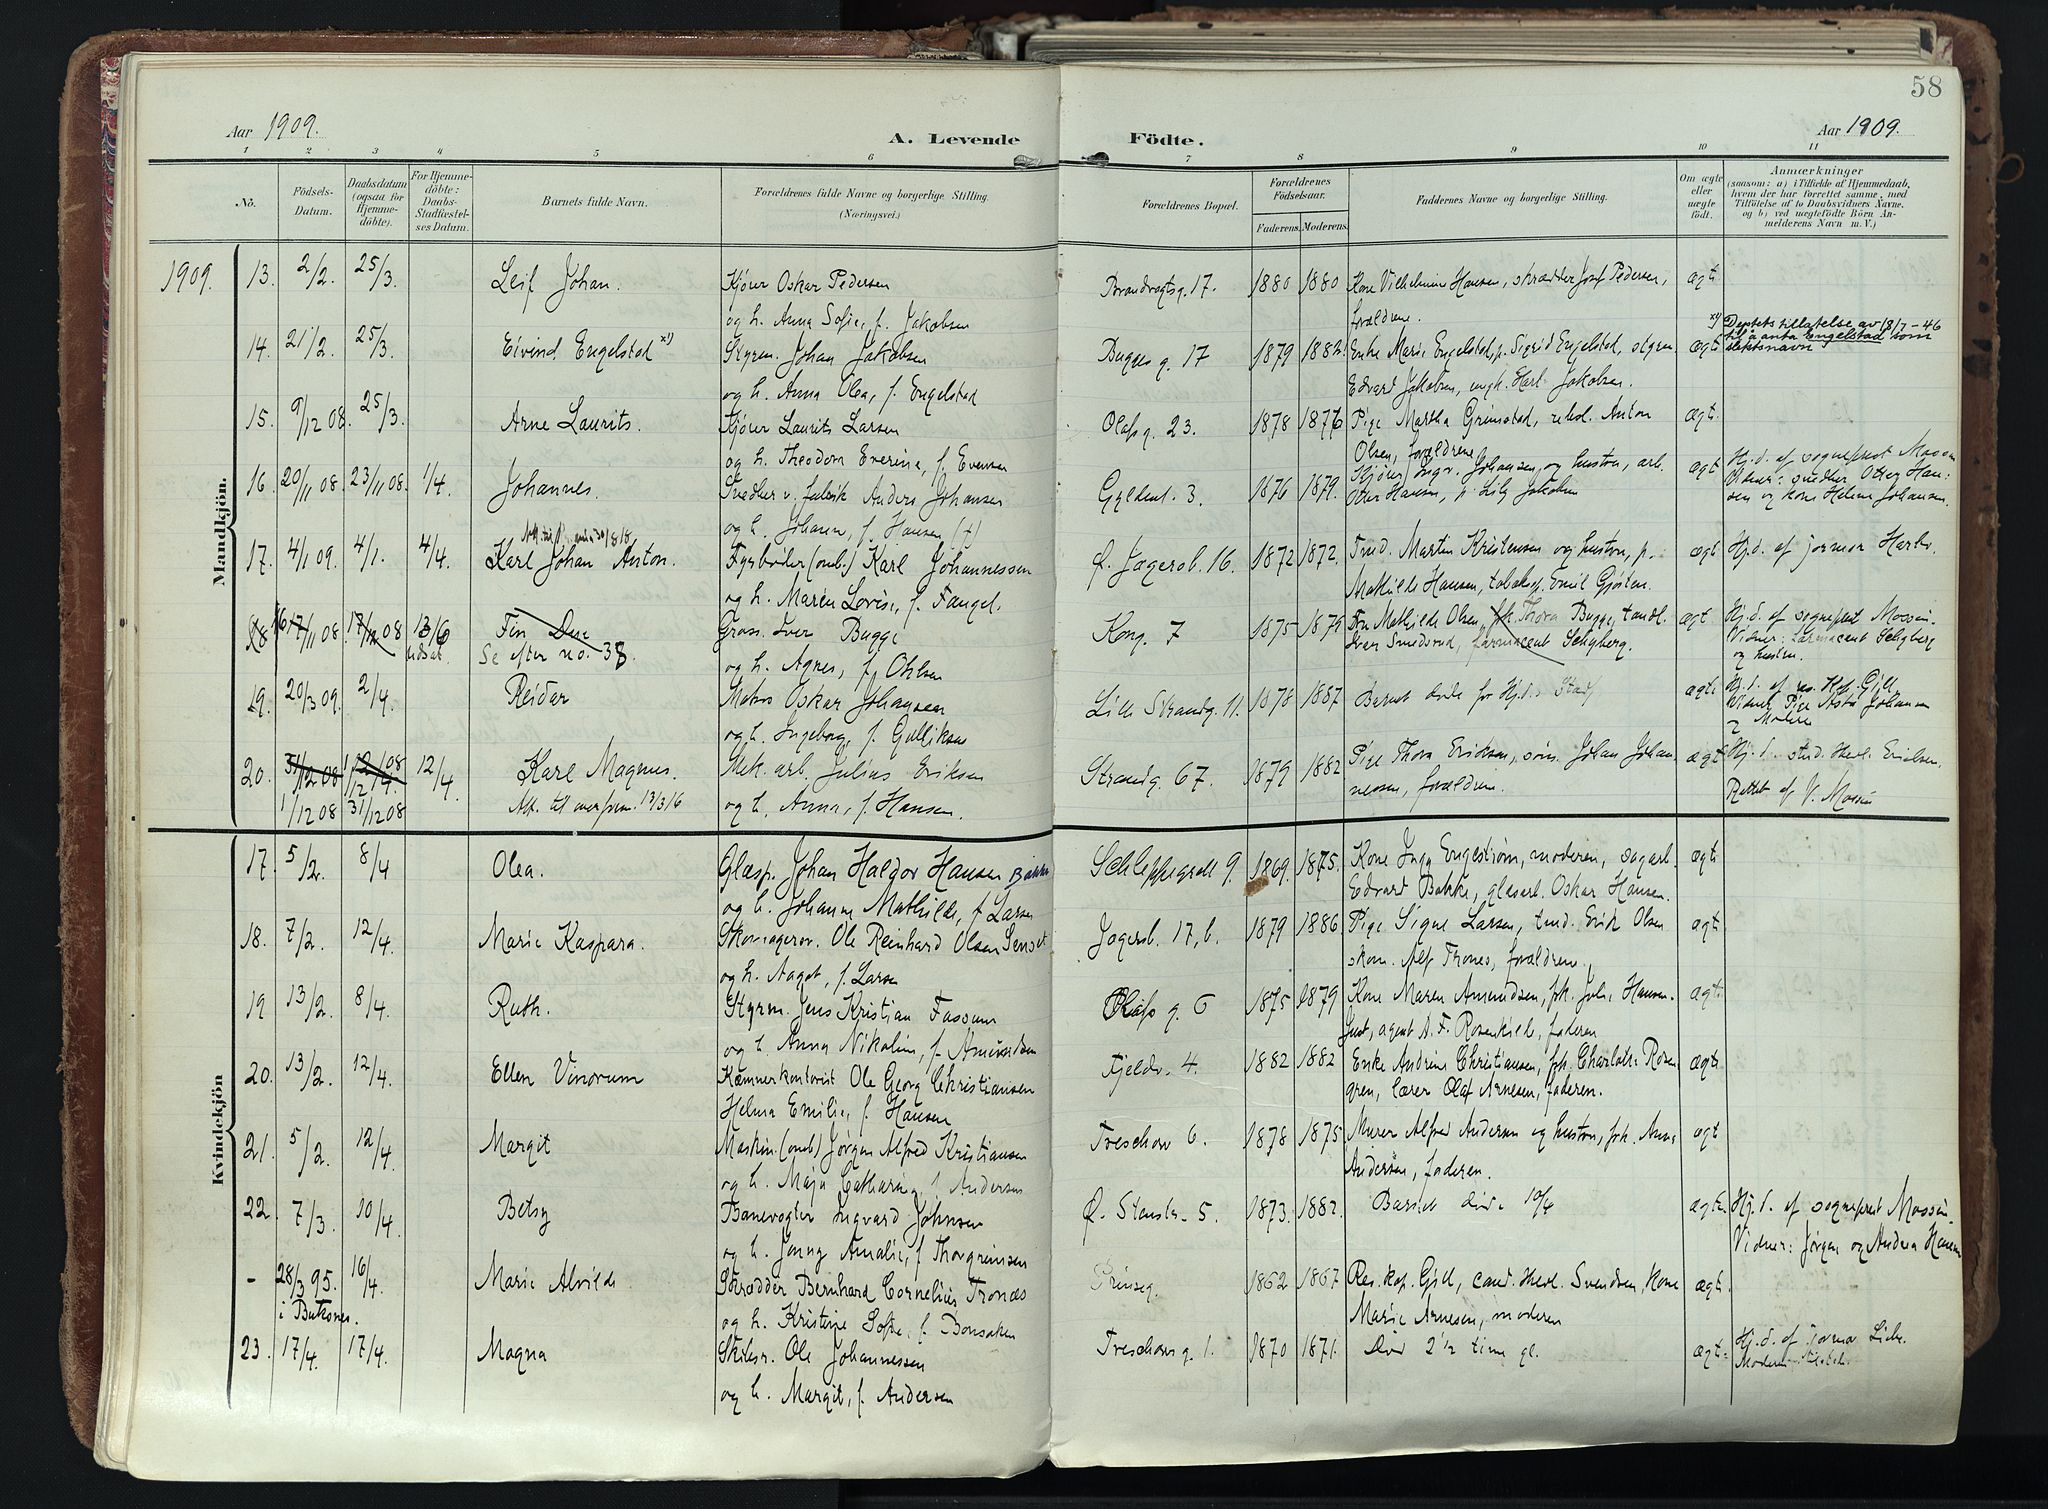 58
Aar 1909.
A. Levende
Födte.
Aar 1909.
1 2 3 4 5 6 7 8 9 10 11
No.
Födsels-
Datum.
Daabsdatum
(ogsaa for
Hjemme-
döbte).
For Hjemme-
döbte:
Daabs-
Stadfæstel-
ses Datum.
Barnets fulde Navn.
Forældrenes fulde Navne og borgerlige Stilling.
(Næringsvei.)
Forældrenes Bopæl.
Forældrenes
Födselsaar.
Faderens. Moderens.
Faddernes Navne og borgerlige Stilling.
Om ægte
eller
uægte
födt.
Anmærkninger
(saasom: a) i Tilfælde af Hjemmedaab,
hvem der har forrettet samme, med
Tilföielse af to Daabsvidners Navne,
og b) ved uegtefödte Börn An-
melderens Navn m. V.)
Mandkjön.
1909. 13. 2/2. 25/3. Leif Johan. Kjører Oskar Pedersen
og h. Anna Sofie, f. Jakobsen
Brandvagtsg. 17. 1880 1880 Kone Vilhelmine Hansen, skrædder Josef Pedersen,
forældrene.
ægte
14. 21/2. 25/3. Eivind Engelstad x1) Styrm. Johan Jakobsen
og h. Anna Olea, f. Engelstad
Bugges g. 17 1879 1882. Enke Marie Engelstad, p. Sigrid Engelstad, styrm.
Edvard Jakobsen, ungk. Harl. Jakobsen.
ægte
x1) Deptets tillatelse av 18/7-46
til å anta Engelstad som
slektsnavn
15. 9/12 08. 25/3. Arne Laurits. Kjører Laurits Larsen
og h. Theodora Everine, f. Evensen
Olafs g. 23. 1878 1876 Pige Martha Grimstad, Anton
Olsen, forældrene
ægt.
16. 20/11 08. 23/11 08. 1/4. Johannes. Snedker v. fabrik Anders Johansen
og h. Johanne, f. Hansen (+)
Gyldenl. 3. 1876 1879. Kjører Ingv. Johansen og hustru, arb.
Otter Hansen, p. Lily Jakobsen
ægt
Hj.d. af sogneprest Mossin
Vidner: snedker Otter Han-
sen og kone Helene Johansen.
17. 4/1 09. 4/1. 4/4. Karl Johan Anton. Fyrbøter (omb.) Karl Johannessen
og h. Maren Lovise, f. Fangel.
Ø. Jægersb. 16. 1872 1872. Tmd. Martin Kristensen og hustru, p.
Mathilde Hansen, tobaksp. Emil Gjøsten.
ægt
Hj.d. af jormor Harbo.
18 17/11 08 17/12 08 13/6 Fin Due
Se efter no. 38.
udsat.
Gross. Iver Bugge
og h. Agnes, f. Ohlsen
Kong. 7 1875 1879 Fru Mathilde Olsen, frk. Thora Bugge, tandl.
Iver Smedsrud, farmaceut Schyberg.
ægt.
Hj.d. af sogneprest Mossin.
Vidner: farmaceut Schyberg
og hustru.
19. 20/3 09. 2/4. Reidar Matros Oskar Johansen
og h. Ingeborg, f. Gulliksen
Lille Strandg. 11. 1878 1887 Barnet døde før Hj.d.s Stadf.
ægte
Hj.d. af res. Kap. Gjill
Vidner Pige Asta Johansen
og Moderen
20. 31/12 08 1/12 08 12/4. Karl Magnus.
1/12 08 31/12 08 Att. til overform. 13/3 16
Mek. arb. Julius Eriksen
og h. Anna, f. Hansen.
Strandg. 67. 1879 1882 Pige Thora Eriksen, søm. Johan Johan-
nessen, forældrene.
ægt
Hj.d. stud. theol. Erichsen.
Rettet af V. Mossin
Kvindekjön
17. 5/2. 8/4 Olea. Glasp. Johan Haldor Hansen Bakke
og h. Johanne Mathilde, f. Larsen
Schleppegrell 9. 1869. 1875. Kone Inga Engestrøm, moderen, sagarb.
Edvard Bakke, glasarb. Oskar Hansen.
ægte
18. 7/2. 12/4. Marie Kaspara. Skomagersv. Ole Reinhard Olsen
og h. Aagot, f. Larsen
Jægersb. 17, b. 1879 1886 Pige Signe Larsen, tmd. Erik Olsen
skom. Alf Thones, forældrene.
ægt.
19 13/2. 8/4. Ruth. Styrm. Jens Kristian Fossum
og h. Anna Nikoline, f. Amundsen
Olafs g. 6 1875 1879 Kone Maren Amundsen, frk. Julie Hansen-
Just, agent A. F. Rosenkilde, faderen
ægt.
20. 13/2. 12/4. Ellen Vinorum Kæmnerkontorist Ole Georg Christiansen
Helma Emilie, f. Hansen
Fjeldv. 4. 1882 1882 Enke Andrine Christiansen, frk. Charlotte Rosen
gren, lærer Olaf Arnesen, faderen.
ægte
21. 5/2. 12/4. Margit Maskin. (omb) Jørgen Alfred Kristiansen
og h. Maja Catharina, f. Andersen
Treschow 6. 1878 1875 Murer Alfred Andersen og hustru, frk. Anna
Andersen, faderen.
ægt
22. 7/3. 10/4. Betsy Banevogter Ingvard Johnsen
og h. Jenny Amalie, f. Thorgrimsen
Ø. Stenstr. 5. 1873. 1882. Barnet døde 10/4
ægte
Hj.d. af sogneprest Mossin.
Vidner: Jørgen og Andrea Hansen
- 28/3 95. 16/4. Marie Alvilde
i Buksnes.
Skrædder Bernhard Cornelius Tronæs
og h. Kristine Sofie, f. Bonsaken
Prinseg. 1862 1867 Res. kap. Gjill, cand. theol. Svendsen, kone
Marie Arnesen, moderen
ægt.
23. 17/4. 17/4. Magna Skibsr. Ole Johannessen
og h. Margit, f. Andersen
Treschows g. 1. 1870 1871. Død 2 1/2 time gl.
ægte
Hj.d. af jormor Lie